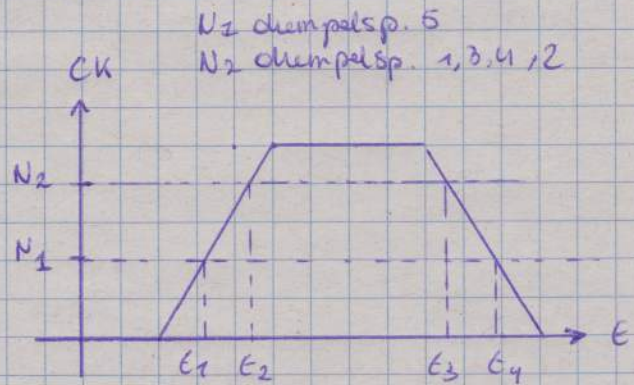 N1 drempelsp. 5
N2 drempelsp. 1,3,4,2
CK
N2
N1
t1 t2 t3 t4 t